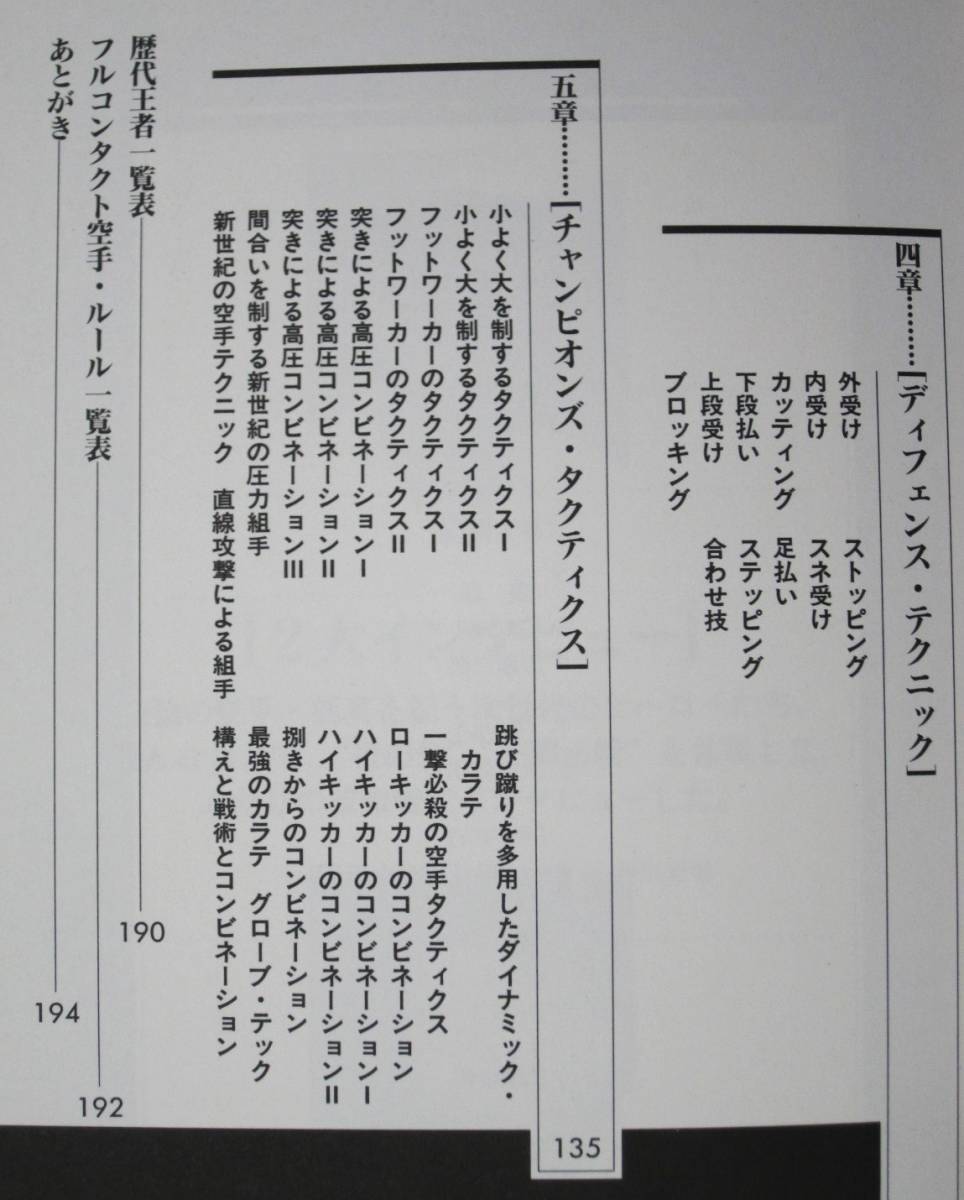 四章………[ディフェンス・テクニック]
外受け
内受け
カッティング
下段払い
上段受け
ブロッキング
ストッピング
スネ受け
足払い
ステッピング
合わせ技
五章………[チャンピオンズ・タクティクス]
135
小よく大を制するタクティクスI
小よく大を制するタクティクスII
フットワーカーのタクティクスI
フットワーカーのタクティクスII
突きによる高圧コンビネーションI
突きによる高圧コンビネーションII
突きによる高圧コンビネーションIII
間合いを制する新世紀の圧力組手
新世紀の空手テクニック 直線攻撃による組手
跳び蹴りを多用したダイナミック・
カラテ
一撃必殺の空手タクティクス
ローキッカーのコンビネーション
ハイキッカーのコンビネーションI
ハイキッカーのコンビネーションII
捌きからのコンビネーション
最強のカラテ グローブ・テック
構えと戦術とコンビネーション
歴代王者一覧表 190
フルコンタクト空手・ルール一覧表 192
あとがき 194